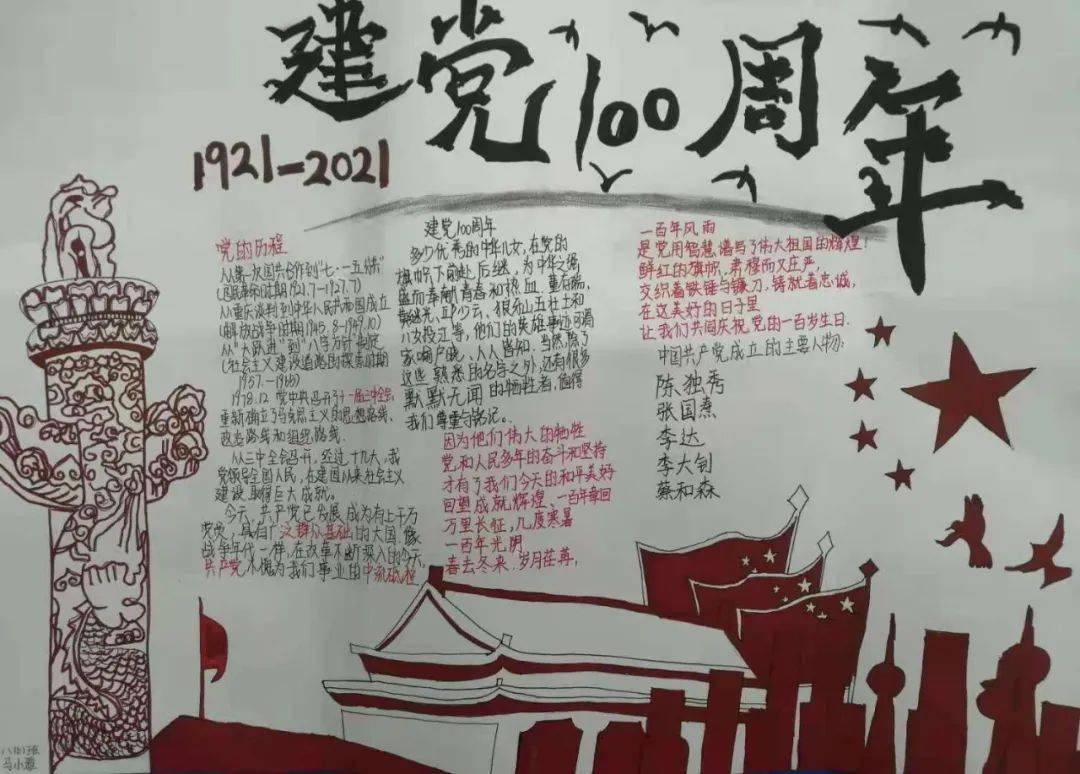 建党100周年
1921-2021
党的历程
从第一次国共合作到"七·一五"
(国民革命时期1921.7-1927.7)
从重庆谈判到中华人民共和国成立
(解放战争时期1945.8-1949.10)
从"大跃进"到"八字方针"制定
(社会主义建设道路的探索时期
1957.-1966)
1978.12 党中央召开了十一届三中全会,
重新确立了马克思主义的思想路线、
政治路线和组织路线.
从三中全会召开,经过十九大,我
党领导全国人民,在建国以来社会主义
建设,取得巨大成就。
今天,共产党已发展成为有上千万
党员,具有广泛群众基础的大国.像
战争年代一样,在改革不断深入的今天,
共产党不愧为我们事业的中流砥柱
建党100周年
多少优秀的中华儿女,在党的
旗帜下前赴后继,为中华之强
盛而奉献青春和热血.董存瑞、
黄继光、邱少云、狼牙山五壮士和
八女投江等,他们的英雄事迹可谓
家喻户晓,人人皆知.当然,除了
这些熟悉的名字之外,还有很多
默默无闻的牺牲者,值得
我们尊重与铭记。
因为他们伟大的牺牲
党和人民多年的奋斗和坚持
才有了我们今天的和平美好
回望成就辉煌,一百年回
万里长征,几度寒暑
一百年光阴
春去冬来.岁月荏苒,
一百年风雨
是党用智慧谱写了伟大祖国的辉煌!
鲜红的旗帜,肃穆而又庄严,
交织着铁锤与镰刀,铸就着忠诚,
在这美好的日子里
让我们共同庆祝党的一百岁生日.
中国共产党成立的主要人物:
陈独秀
张国焘
李达
李大钊
蔡和森
马小雅